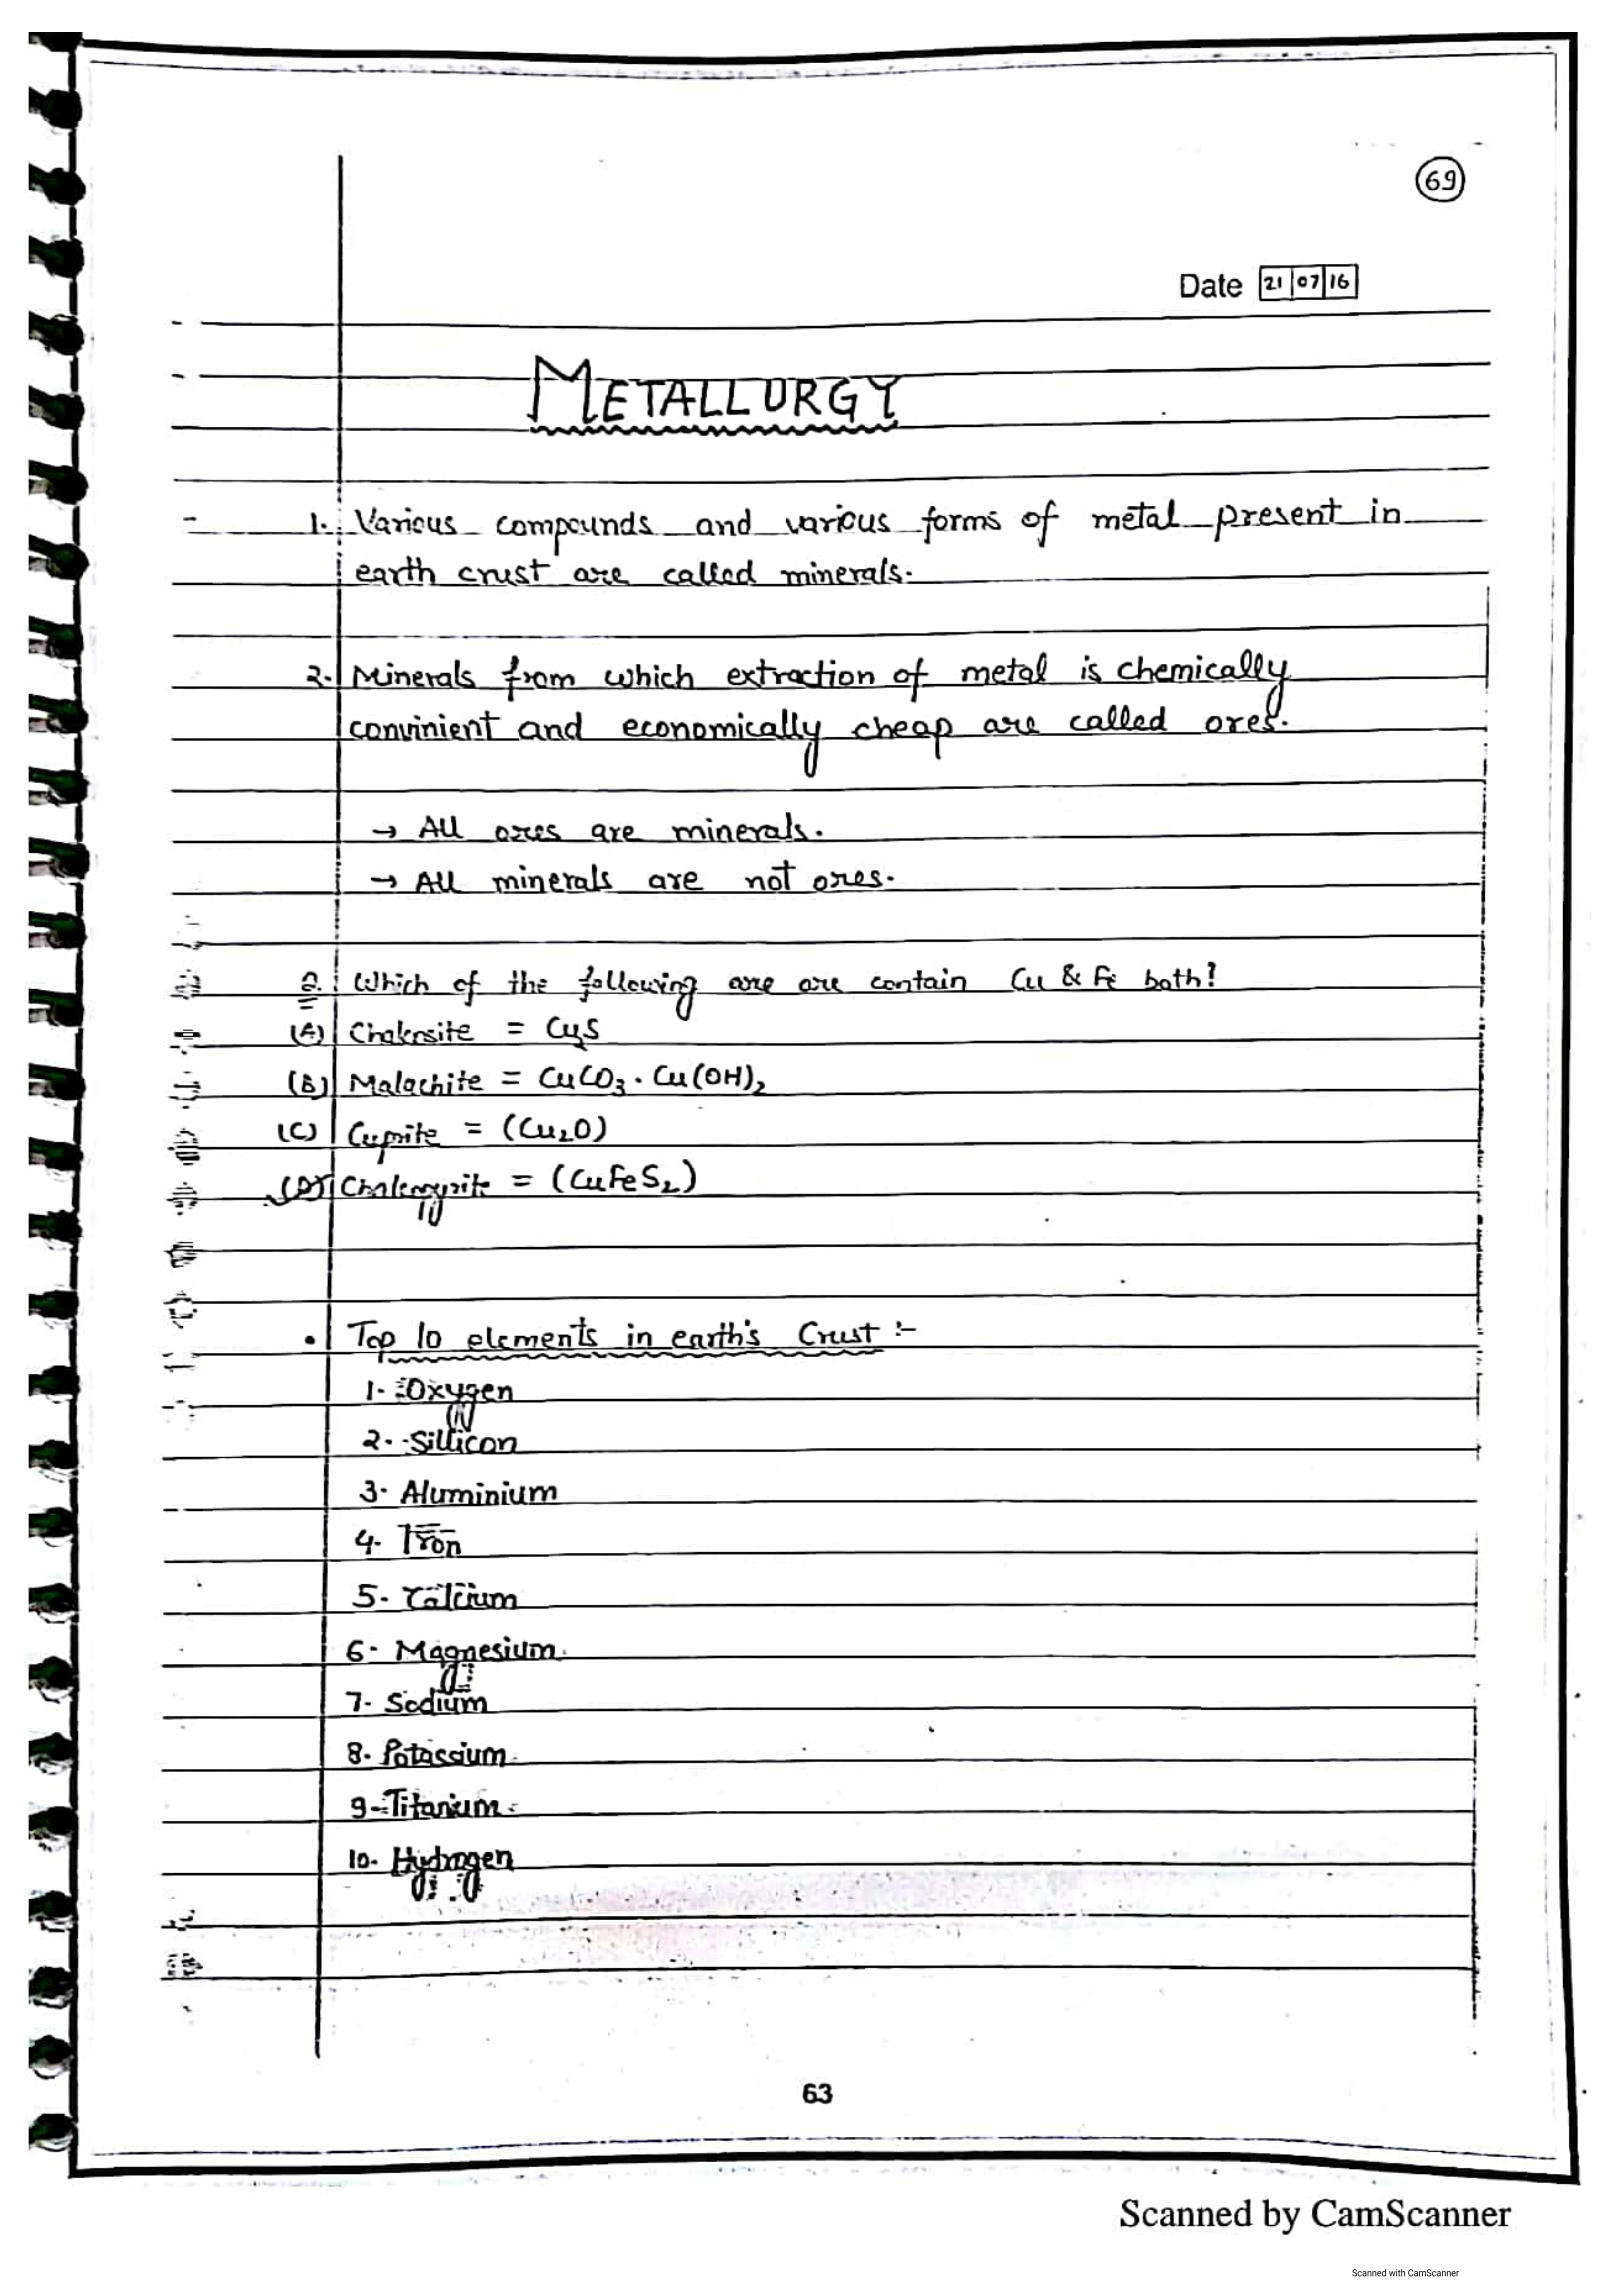 69
Date 21 07 16
METALLURGY
1. Various compounds and various forms of metal present in
earth crust are called minerals.
2. Minerals from which extraction of metal is chemically
convinient and economically cheap are called ores.
→ All ores are minerals.
→ All minerals are not ores.
Q. Which of the following are ore contain Cu & Fe both?
(A) Chalcosite = Cu2S
(B) Malachite = CuCO3 . Cu(OH)2
(C) Cuprite = (Cu2O)
(D) Chalcopyrite = (CuFeS2)
• Top 10 elements in earth's Crust :-
1. Oxygen
2. Sillicon
3. Aluminium
4. Iron
5. Calcium
6. Magnesium
7. Sodium
8. Potassium
9. Titanium
10. Hydrogen
63
Scanned by CamScanner
Scanned with CamScanner